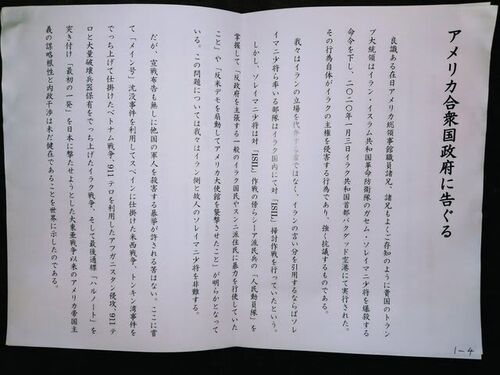 アメリカ合衆国政府に告ぐる
良識ある在日アメリカ総領事館職員諸兄、諸兄もよくご存知のように貴国のトラン
プ大統領はイラン・イスラム共和国革命防衛隊のガセム・ソレイマニ少将を爆殺する
命令を下し、二〇二〇年一月三日イラク共和国首都バグダッド空港にて実行された。
その行為自体がイラクの主権を侵害する行為であり、強く抗議するものである。
我々はイランの立場を代弁する者ではなく、イランの言い分を引用するならばソレ
イマニ少将ら率いる部隊はイラク国内にて対「ISIL」掃討作戦を行っていたという。
しかし、ソレイマニ少将は対「ISIL」作戦の傍らシーア派民兵の「人民動員隊」を
掌握して「反政府を主張する一般のイラク国民やスンニ派住民に暴力を行使していた
こと」や「反米デモを扇動してアメリカ大使館を襲撃させたこと」が明らかとなって
いる。この問題については我々はイラン側と故人のソレイマニ少将を非難する。
だが、宣戦布告も無しに他国の軍人を殺害する暴挙が許される筈はない。ここに嘗
て「メイン号」沈没事件を利用してスペインに仕掛けた米西戦争、トンキン湾事件を
でっち上げて仕掛けたベトナム戦争、911テロを利用したアフガニスタン侵攻、911テ
ロと大量破壊兵器保有をでっち上げたイラク戦争、そして最後通牒「ハルノート」を
突き付け「最初の一発」を日本に撃たせようとした大東亜戦争以来のアメリカ帝国主
義の謀略根性と内政干渉は未だ健在であることを世界に示したのである。
1-4